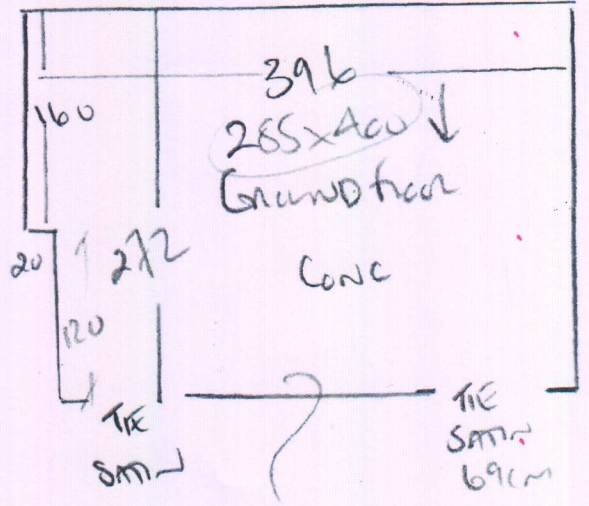 396
160
285x400
GROUND floor
20
272
CONC
120
TIE
SATIN
TIE
SATIN
69cm